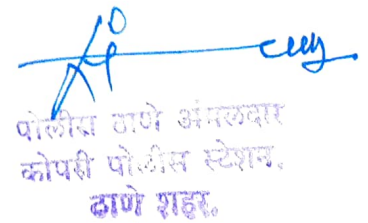 पोलीस ठाणे अंमलदार
कोपरी पोलीस स्टेशन.
ठाणे शहर.